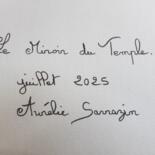 Le Miroir du Temple.
juillet 2025
Aurélie Sarrazin